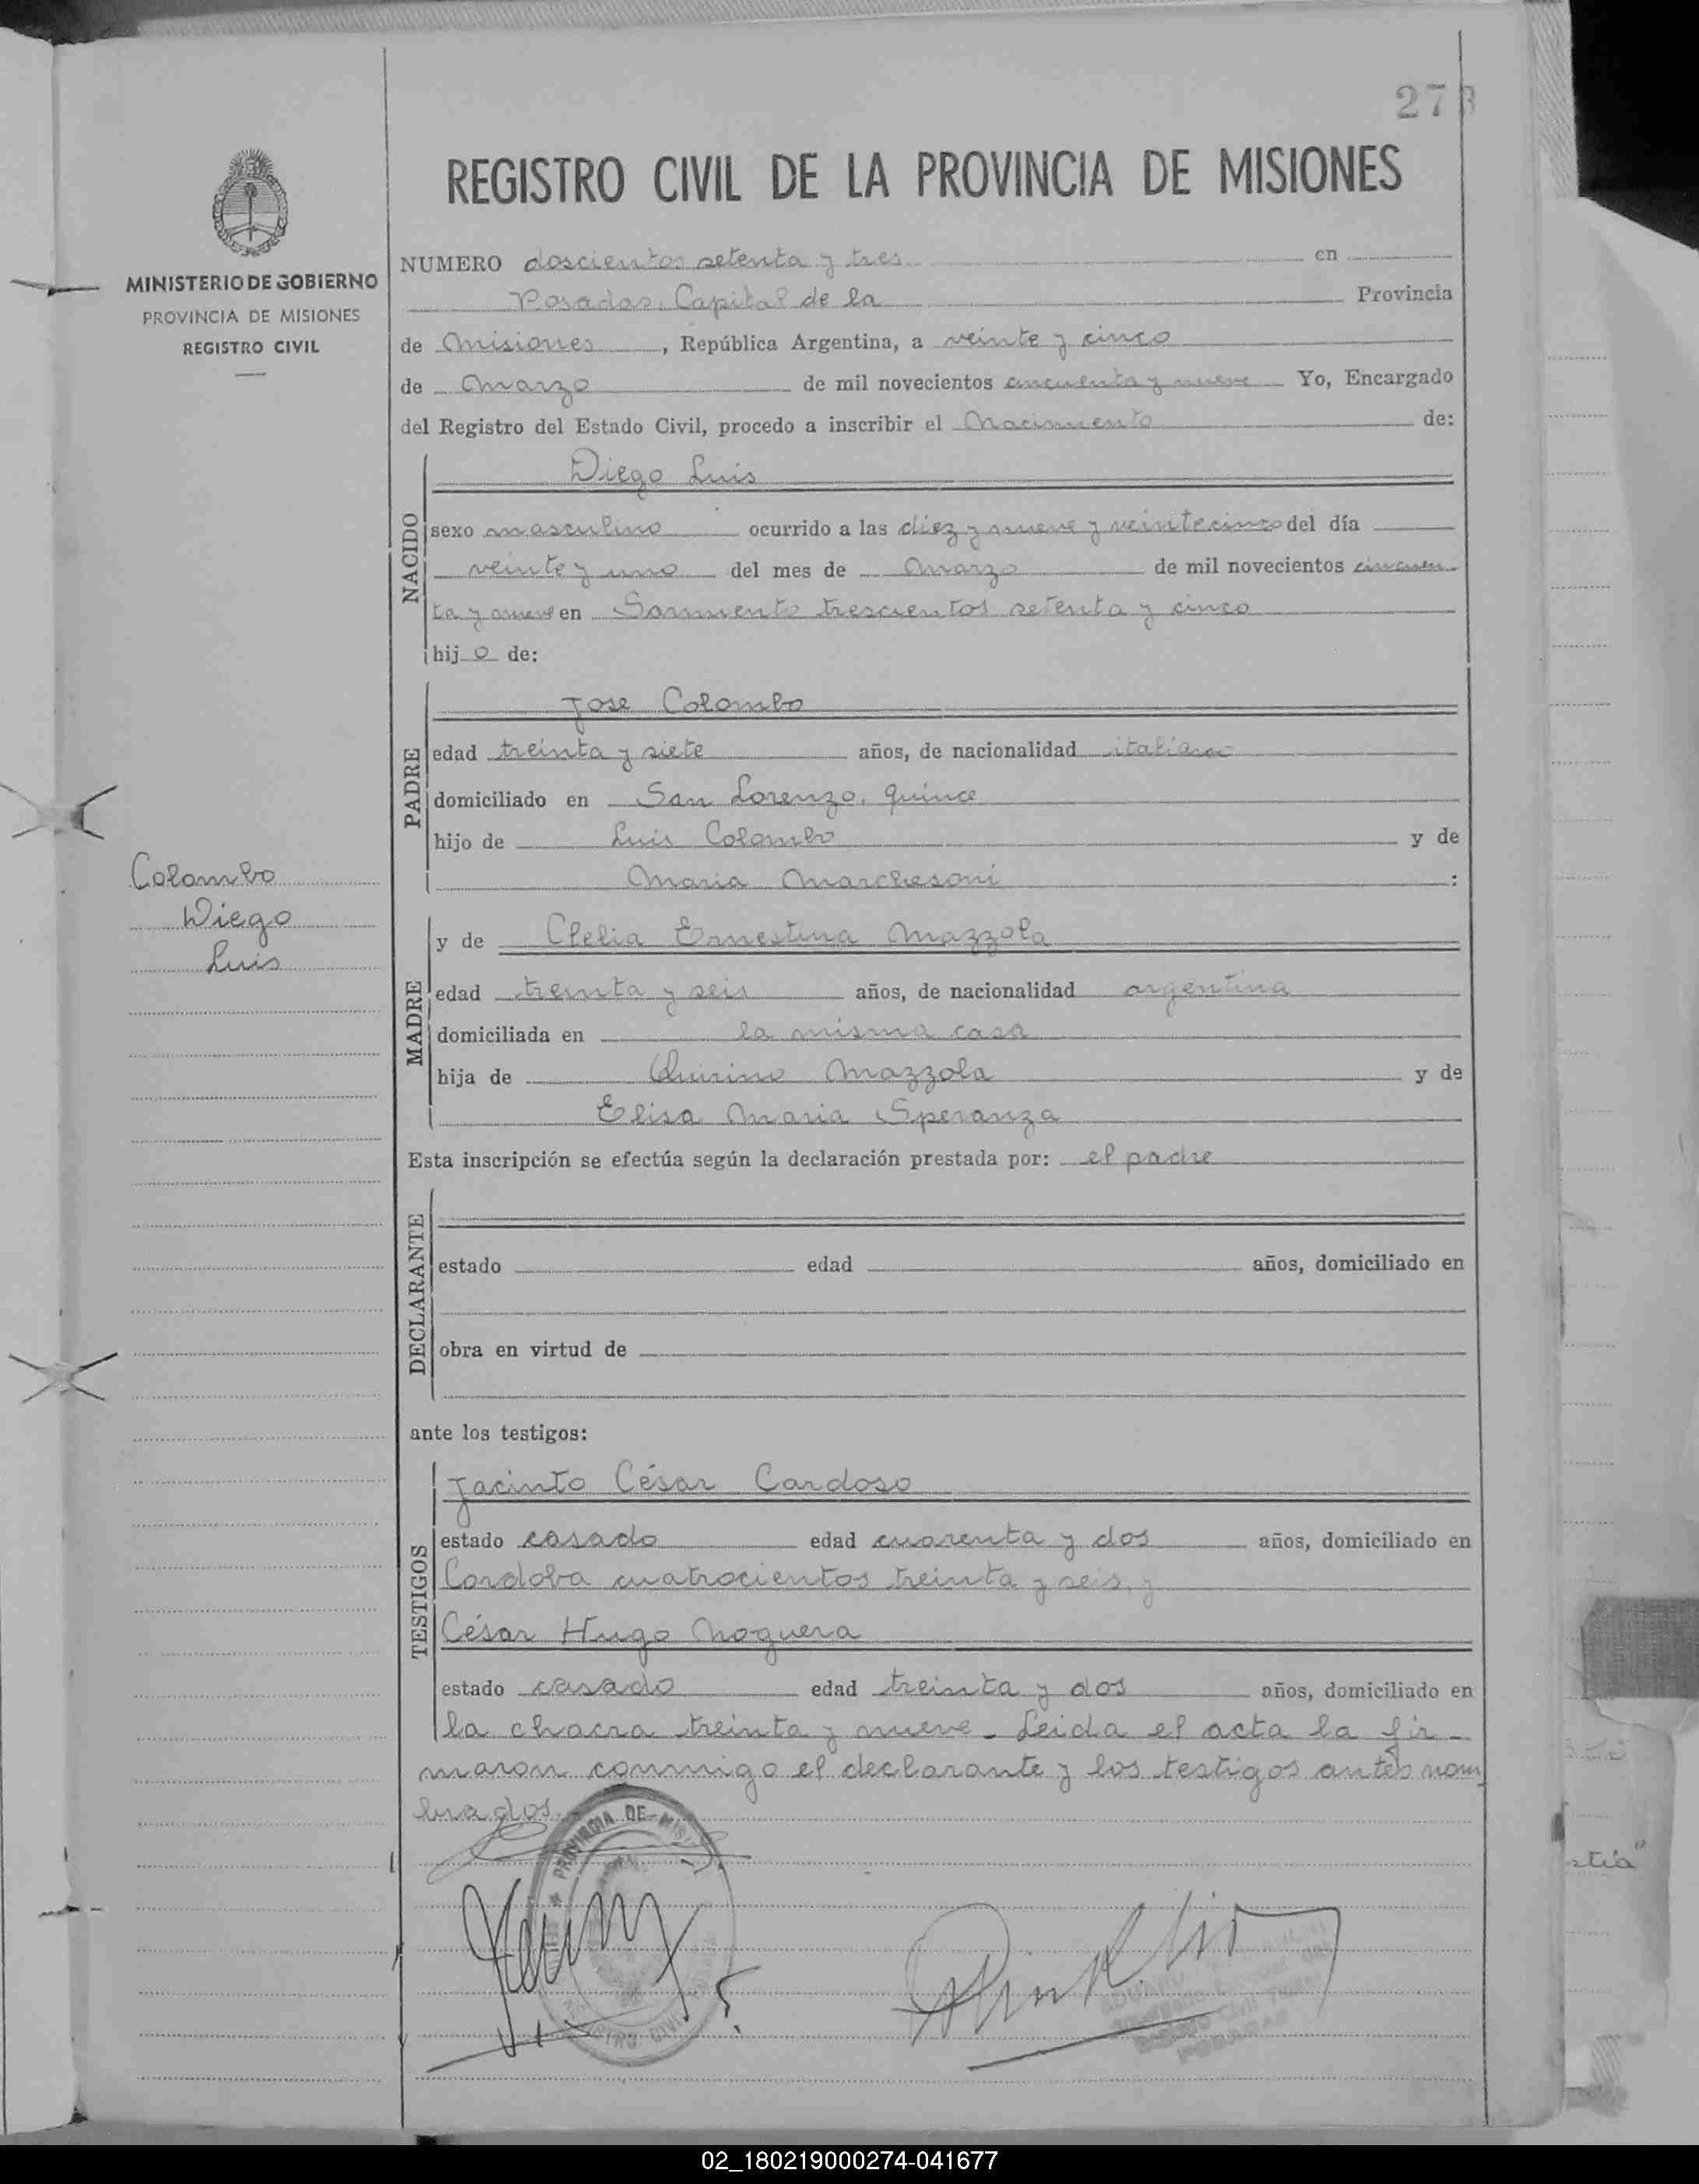 273
REGISTRO CIVIL DE LA PROVINCIA DE MISIONES
MINISTERIO DE GOBIERNO
PROVINCIA DE MISIONES
REGISTRO CIVIL
NUMERO doscientos setenta y tres en
Posadas, Capital de la Provincia
de Misiones, República Argentina, a veinte y cinco
de Marzo de mil novecientos cincuenta y nueve Yo, Encargado
del Registro del Estado Civil, procedo a inscribir el Nacimiento de:
NACIDO
Diego Luis
sexo masculino ocurrido a las diez y nueve y veintecinco del día
veinte y uno del mes de Marzo de mil novecientos cincuen
ta y nueve en Sarmiento trescientos setenta y cinco
hijo de:
PADRE
Jose Colombo
edad treinta y siete años, de nacionalidad italiana
domiciliado en San Lorenzo, quince
hijo de Luis Colombo y de
Maria Marchesoni :
Colombo
Diego
Luis
MADRE
y de Clelia Ernestina Mazzola
edad treinta y seis años, de nacionalidad argentina
domiciliada en la misma casa
hija de Quirino Mazzola y de
Elisa Maria Speranza
Esta inscripción se efectúa según la declaración prestada por: el padre
DECLARANTE
estado edad años, domiciliado en
obra en virtud de
ante los testigos:
TESTIGOS
Jacinto César Cardoso
estado casado edad cuarenta y dos años, domiciliado en
Cordoba cuatrocientos treinta y seis, y
César Hugo Noguera
estado casado edad treinta y dos años, domiciliado en
la chacra treinta y nueve - Leida el acta la fir-
maron conmigo el declarante y los testigos antes nom
brados.
PROVINCIA DE MISI
REGISTRO CIVIL
POSADAS
02_180219000274-041677